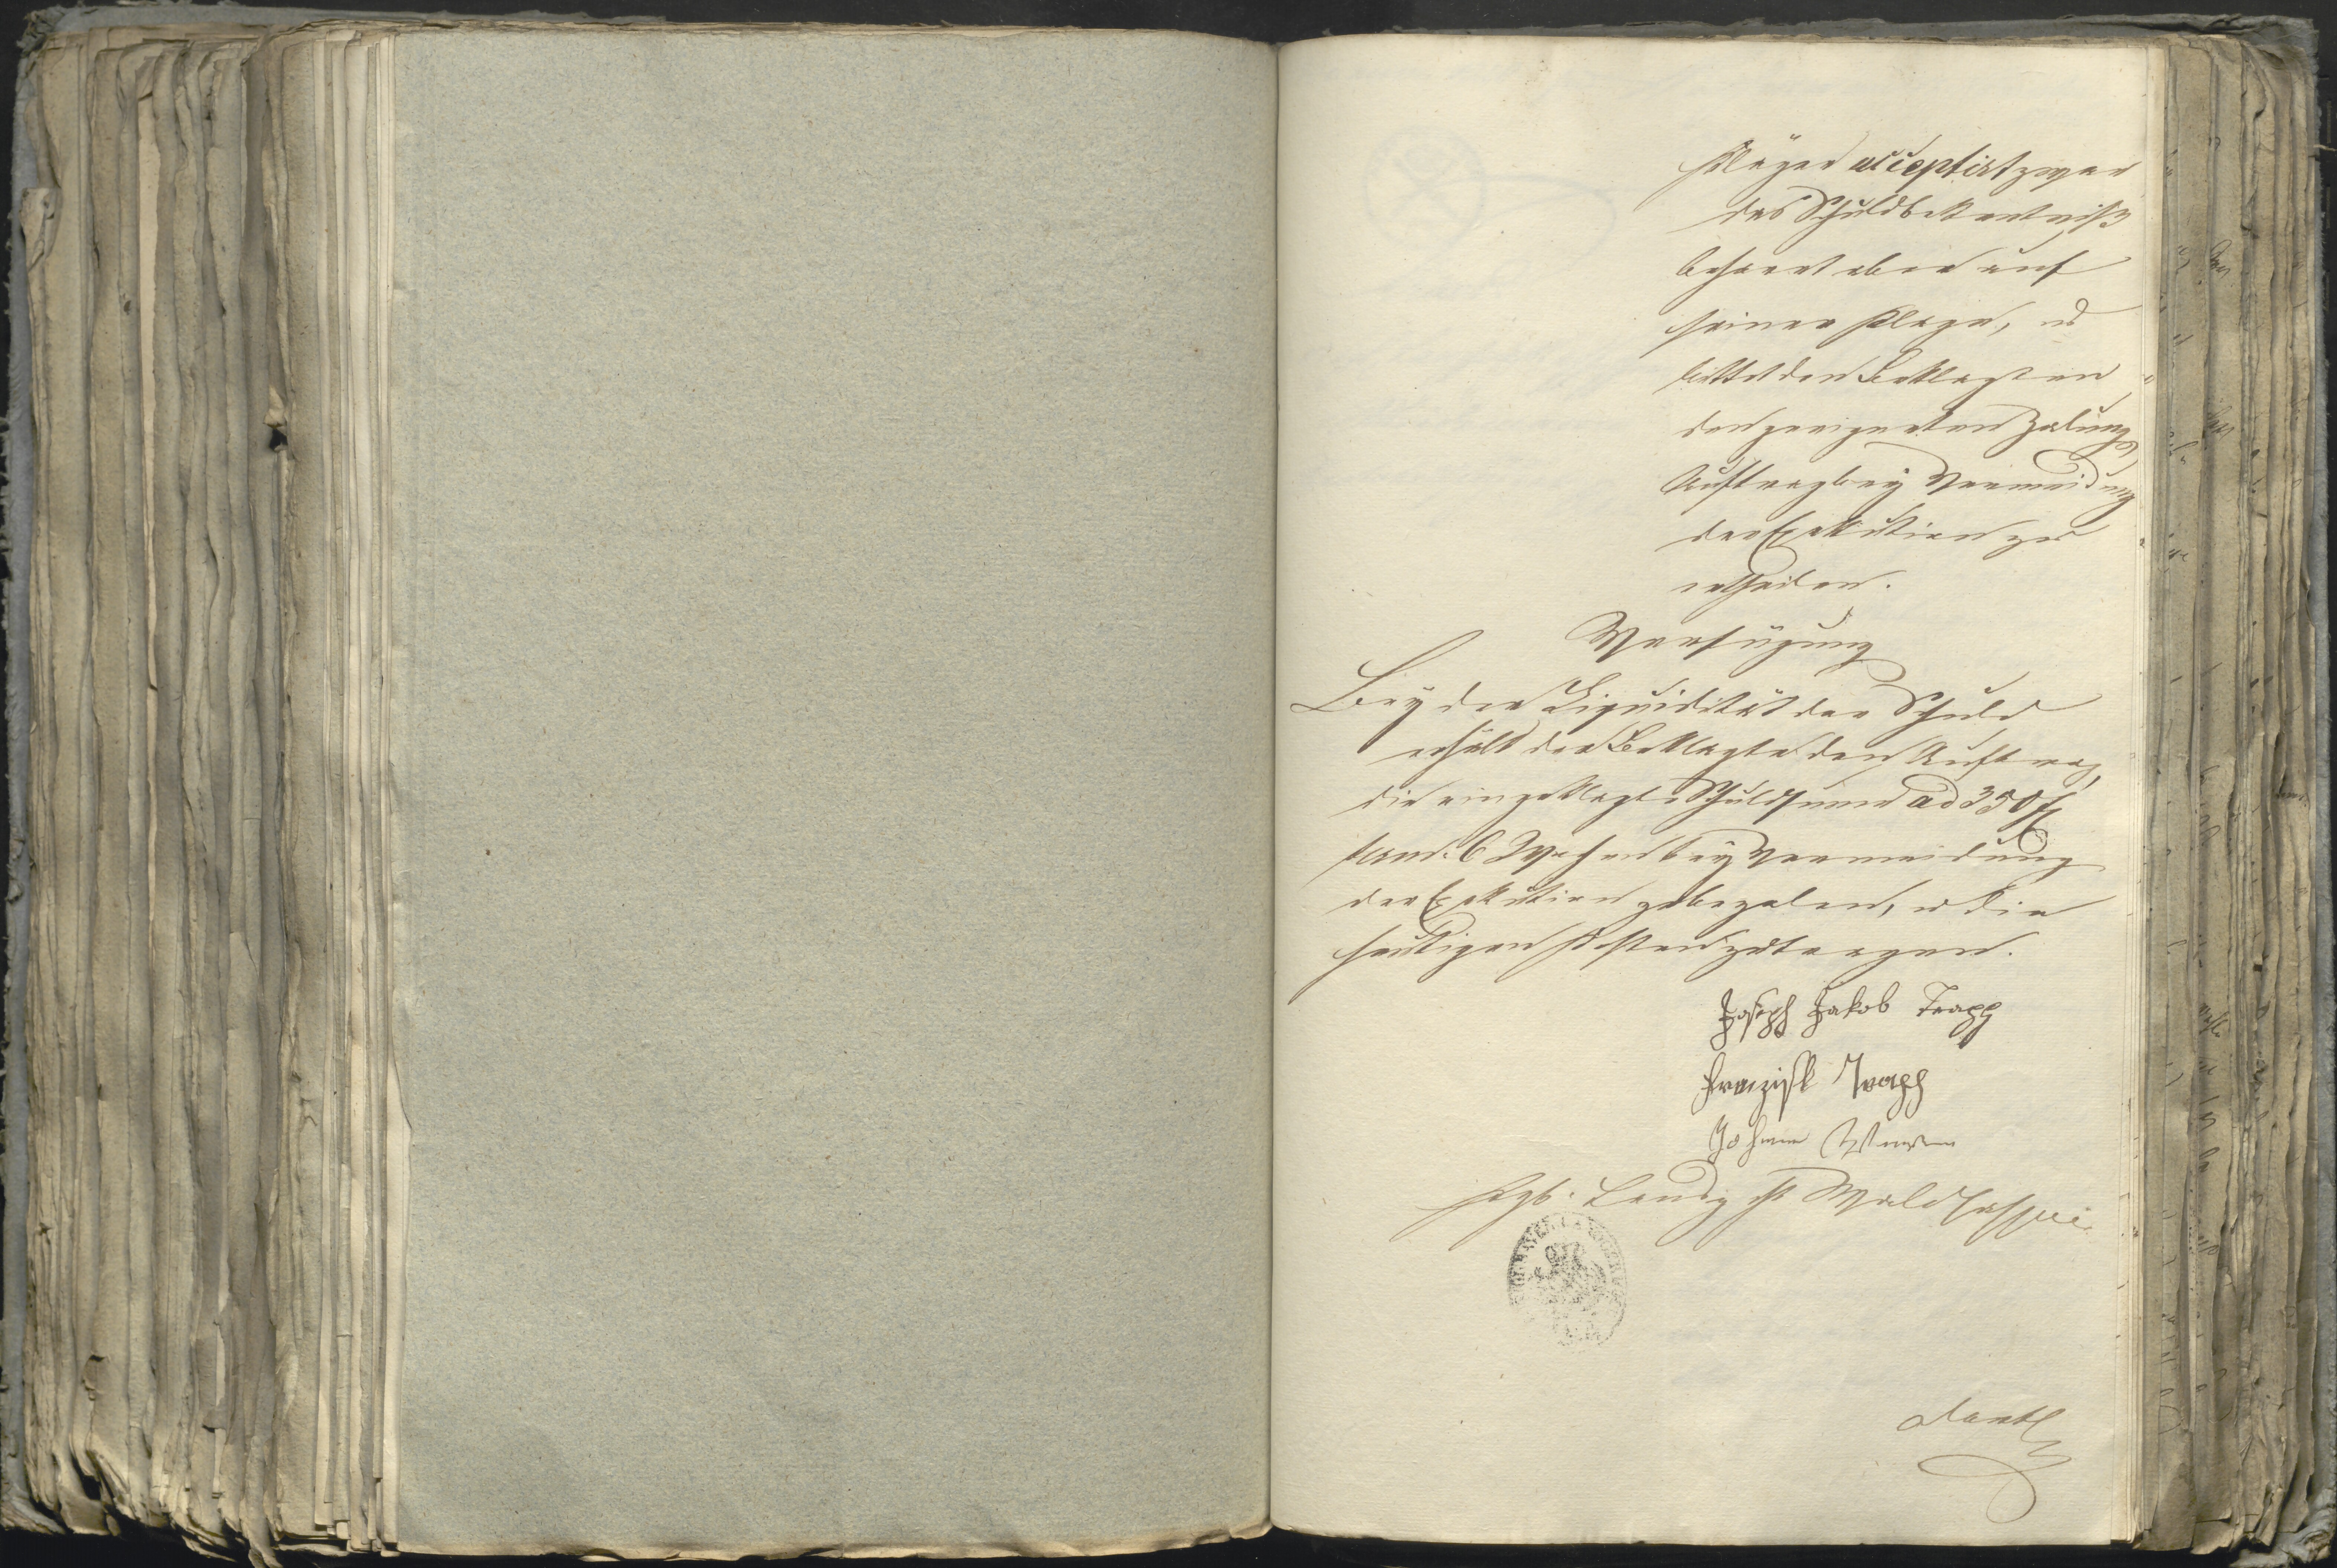 Kläger acceptirt zwar
das Schuldbekentniß
beharrt aber auf
seiner Klage, u
bittet den Beklagten
den geeigneten Zalungs
Auftrag bey Vermeidung
der Exekution zu
ertheilen.
Verfügung
Bey der Liquidität der Schuld
erhält der Beklagte den Auftrag,
die eingeklagte Schuldsumme ad 350 f
binnen 6 Wochen bey Vermeidung
der Exekution zu bezalen, u die
heutigen Kosten zu tragen.
Joseph Jakob Trapp
Franzisk Trapp
Johann
Kgb. Landg Waldsassen